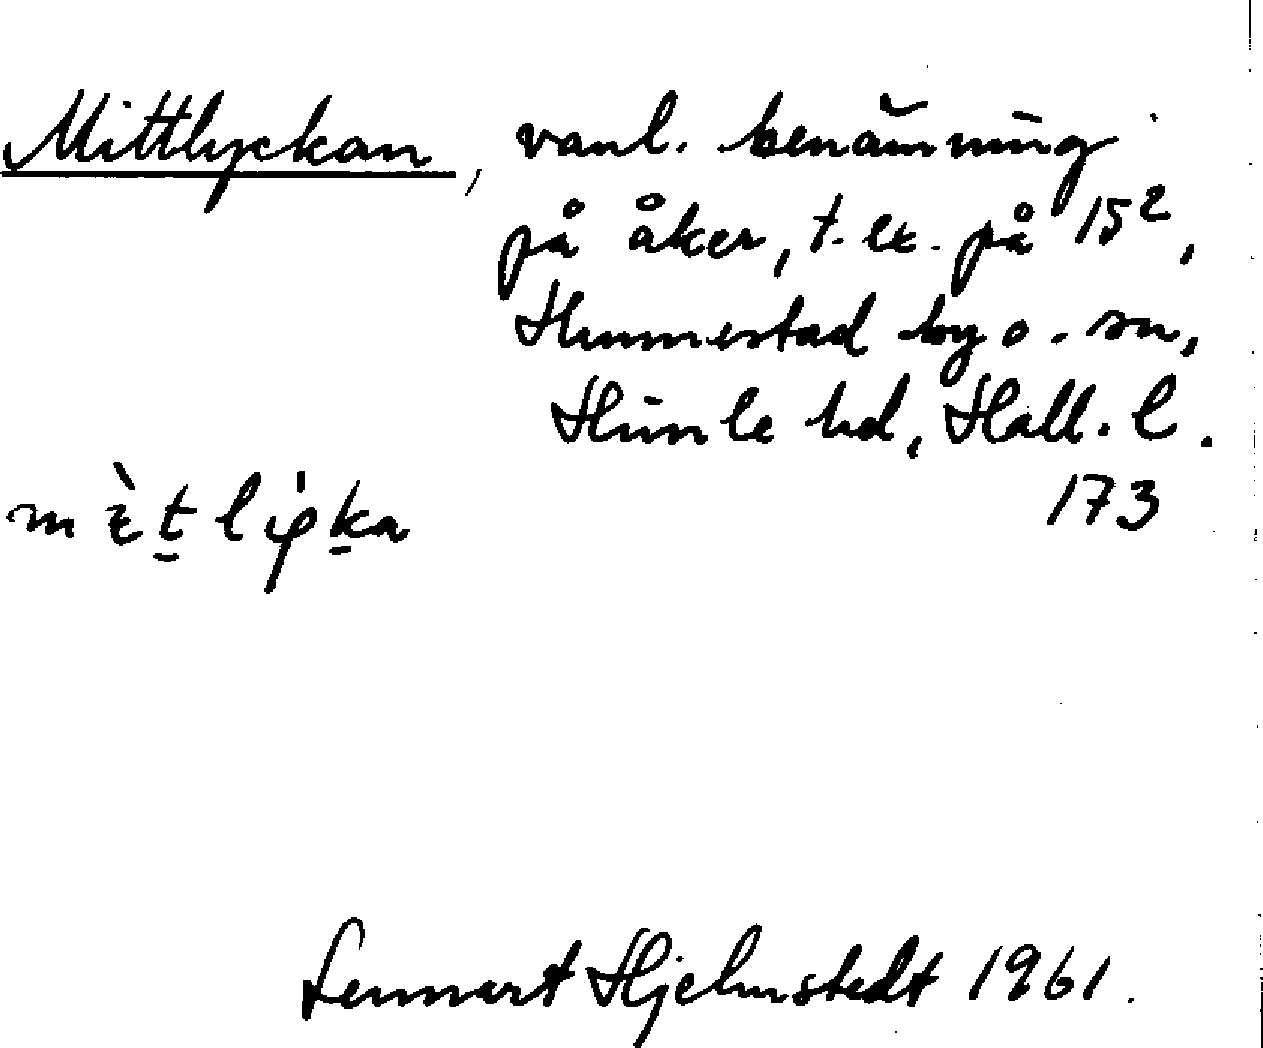 Mittlyckan, vanl. benämning
på åker, t.ex. på 15²,
Hunnestad by o. sn,
Himle hd, Hall. l.
173
Lennart Hjelmstedt 1961.